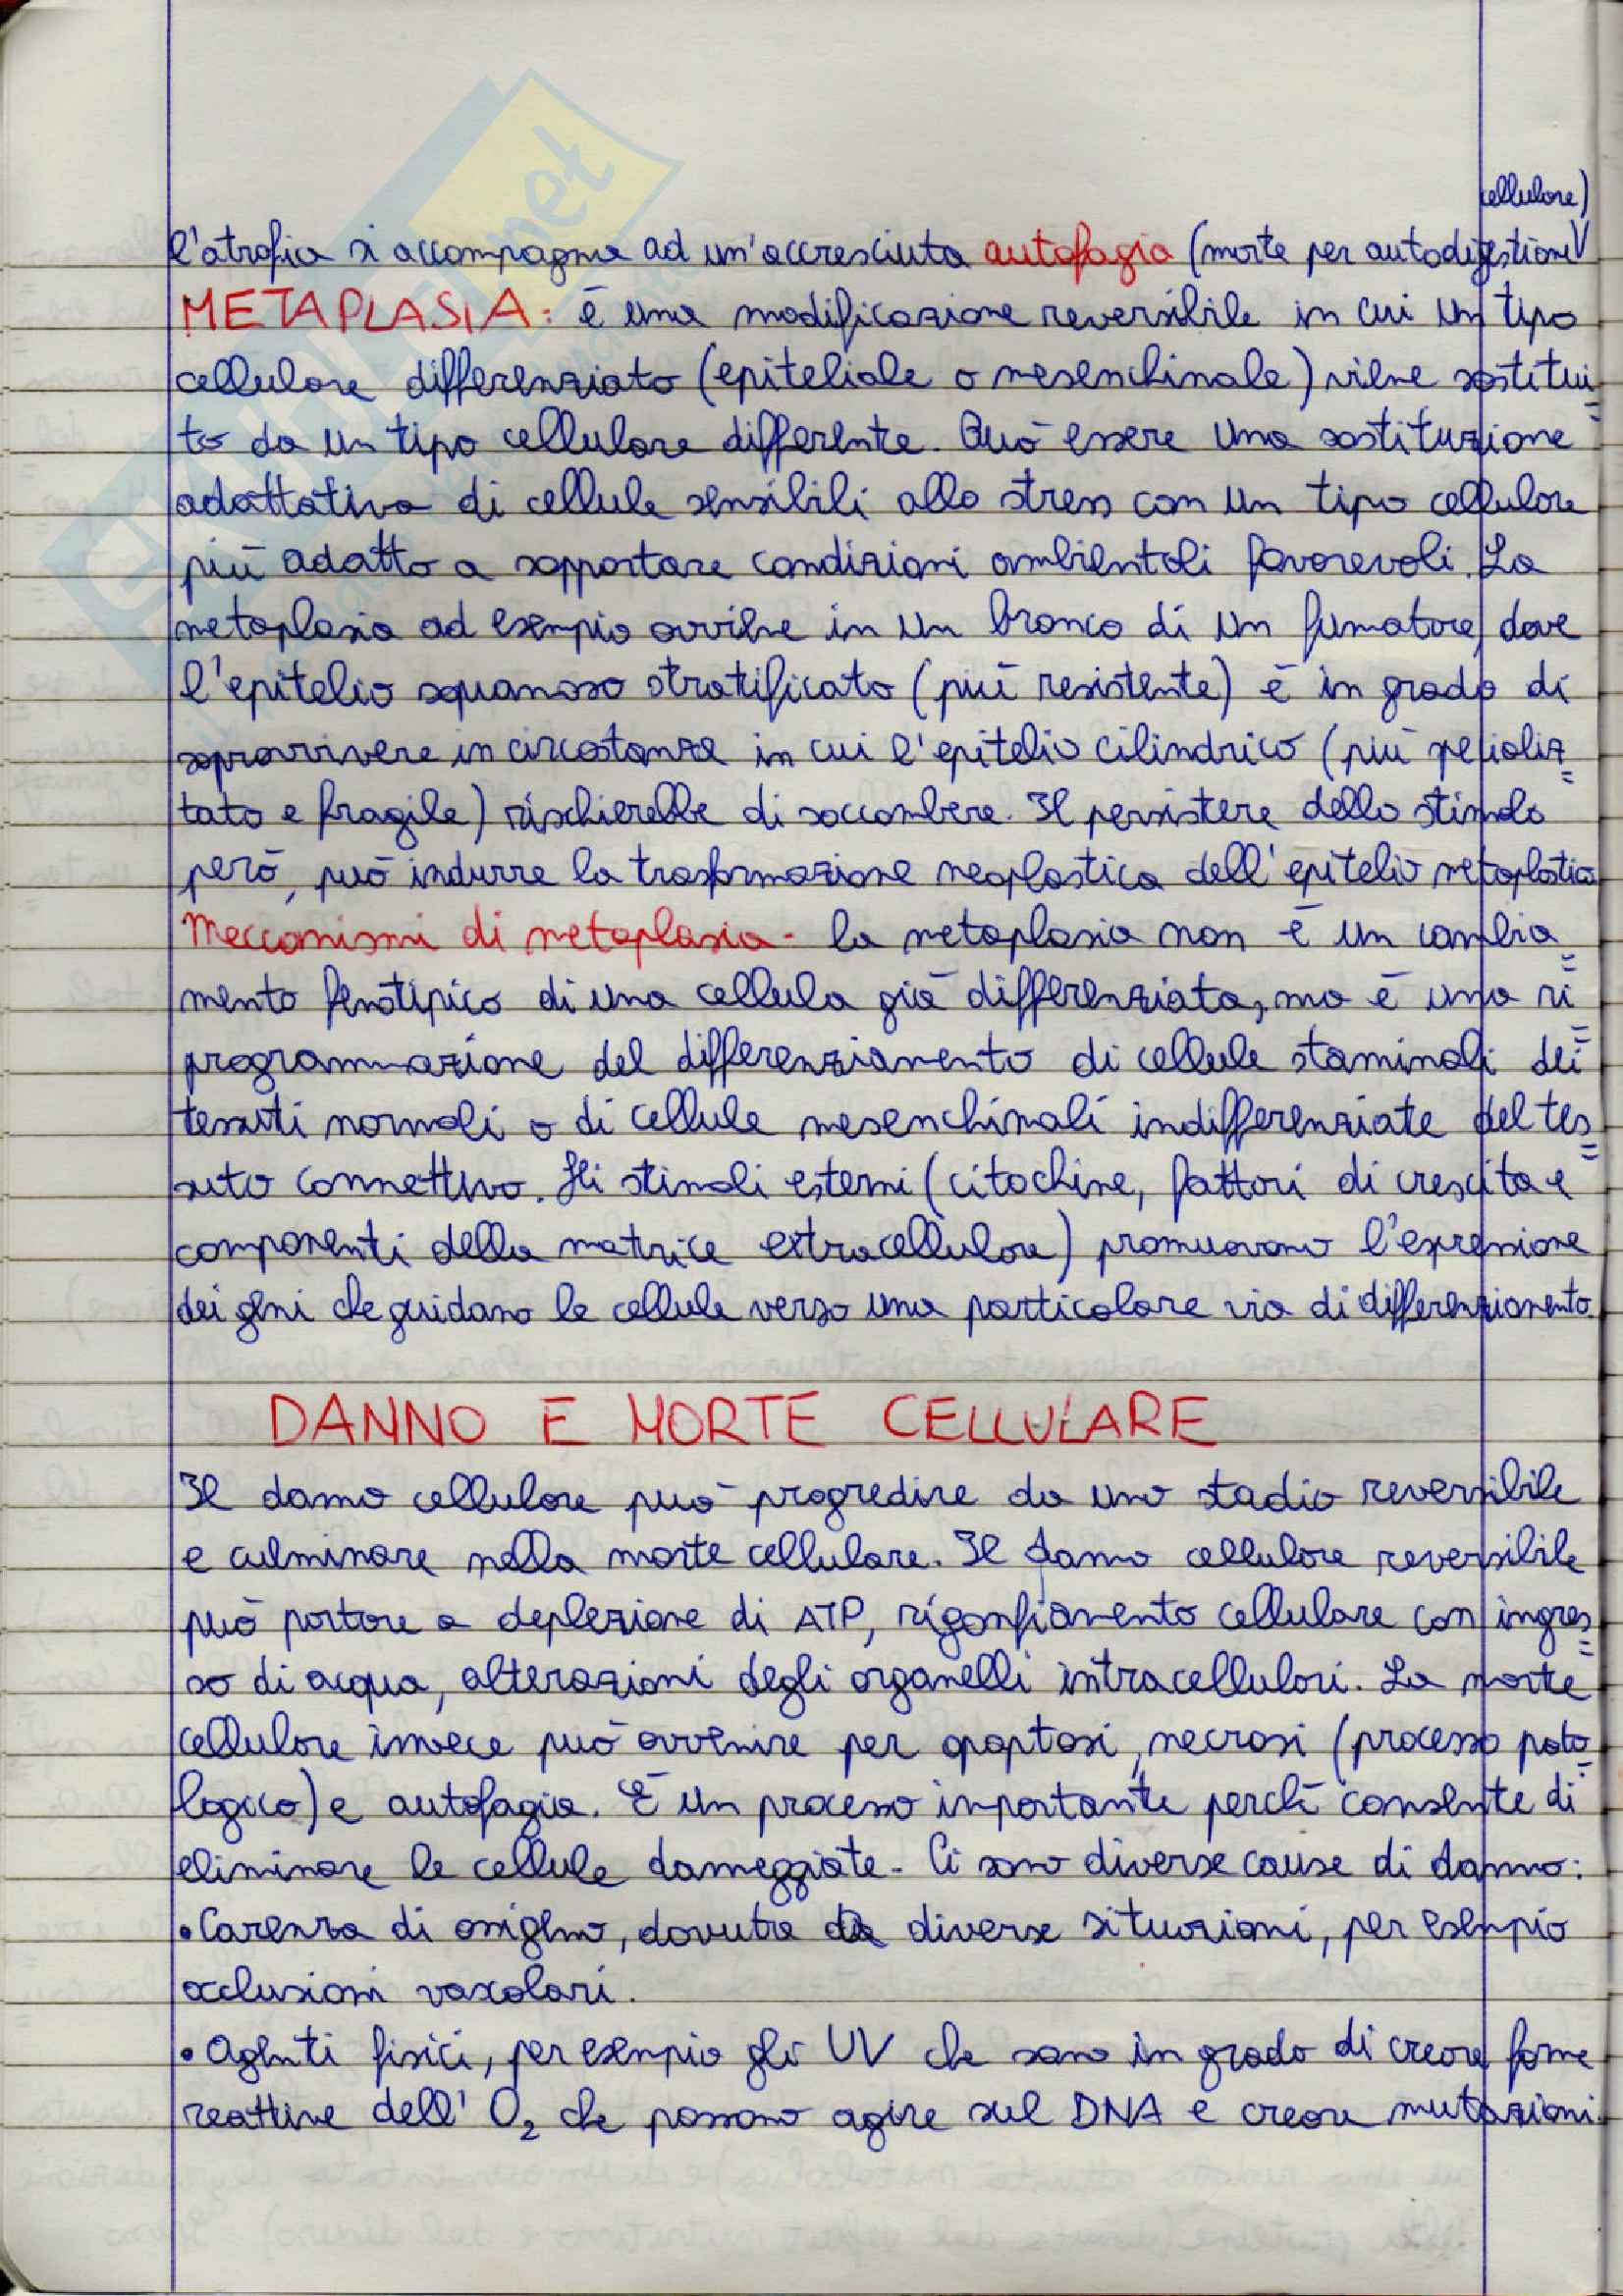 cellulare)
l'atrofia si accompagna ad un'accresciuta autofagia (morte per autodigestione
METAPLASIA: è una modificazione reversibile in cui un tipo
cellulare differenziato (epiteliale o mesenchimale) viene sostitui=
to da un tipo cellulare differente. Può essere una sostituzione
adattativa di cellule sensibili allo stress con un tipo cellulare
più adatto a sopportare condizioni ambientali favorevoli. La
metaplasia ad esempio avviene in un bronco di un fumatore, dove
l'epitelio squamoso stratificato (più resistente) è in grado di
sopravvivere in circostanze in cui l'epitelio cilindrico (più specializ=
tato e fragile) rischierebbe di soccombere. Il persistere dello stimolo
però, può indurre la trasformazione neoplastica dell'epitelio metaplastico
Meccanismi di metaplasia- la metaplasia non è un cambia=
mento fenotipico di una cellula già differenziata, ma è una ri=
programmazione del differenziamento di cellule staminali dei
tessuti normali o di cellule mesenchimali indifferenziate del tes=
suto connettivo. Gli stimoli esterni (citochine, fattori di crescita e
componenti della matrice extracellulare) promuovono l'espressione
dei geni che guidano le cellule verso una particolare via di differenziamento.
DANNO E MORTE CELLULARE
Il danno cellulare può progredire da uno stadio reversibile
e culminare nella morte cellulare. Il danno cellulare reversibile
può portare a deplezione di ATP, rigonfiamento cellulare con ingres=
so di acqua, alterazioni degli organelli intracellulari. La morte
cellulare invece può avvenire per apoptosi, necrosi (processo pato=
logico) e autofagia. È un processo importante perchè consente di
eliminare le cellule danneggiate- Ci sono diverse cause di danno:
•Carenza di ossigeno, dovuta da diverse situazioni, per esempio
occlusioni vascolari.
•Agenti fisici, per esempio gli UV che sono in grado di creare forme
reattive dell'O₂ che possono agire sul DNA e creare mutazioni.